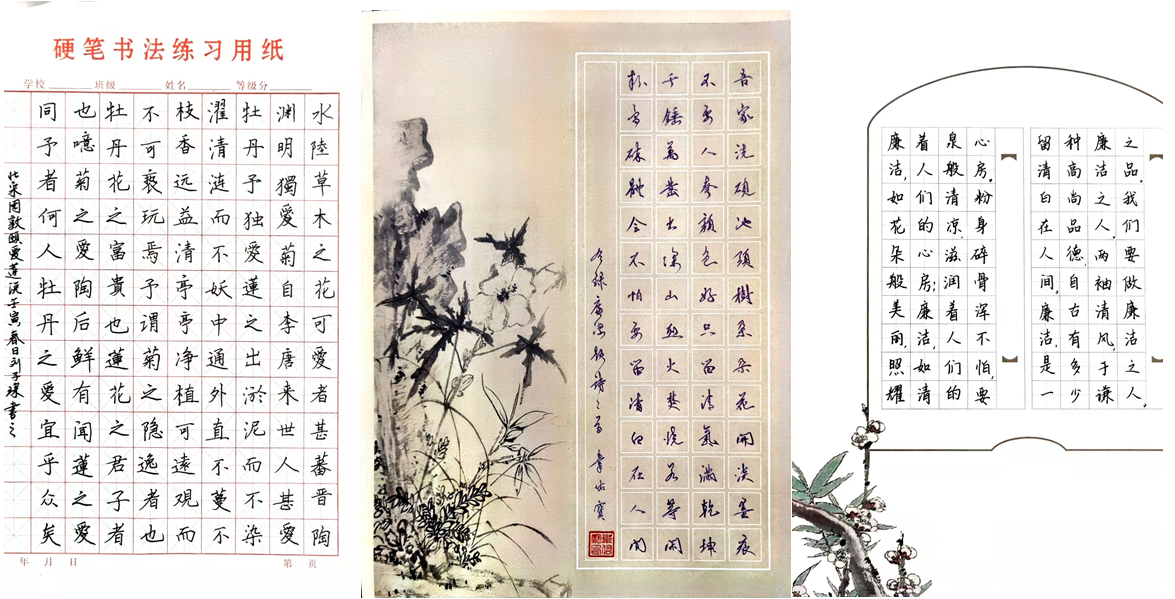 硬笔书法练习用纸
学校 班级 姓名 等级分
水陸草木之花可愛者甚蕃晋陶
渊明獨愛菊自李唐来世人甚愛
牡丹予独愛蓮之出淤泥而不染
濯清涟而不妖中通外直不蔓不
枝香远益清亭亭净植可遠观而
不可亵玩焉予谓菊之隐逸者也
牡丹花之富貴也蓮花之君子者
也噫菊之愛陶后鲜有闻蓮之愛
同予者何人牡丹之愛宜乎众矣
北宋周敦颐愛蓮说壬寅春日刘子琛書之
年 月 日 第 页
吾家洗硯池頭樹朵朵花開淡墨痕
不要人夸顔色好只留清氣滿乾坤
千錘萬鑿出深山烈火焚燒若等閑
粉骨碎身全不怕要留清白在人间
廉洁，如花朵般美丽，照耀
着人们的心房；廉洁，如清
泉般清凉滋润着人们的
心房。粉身碎骨浑不怕，要
留清白在人间。廉洁，是一
种高尚品德。自古有多少
廉洁之人。两袖清风，于谦
之品。我们要做廉洁之人，